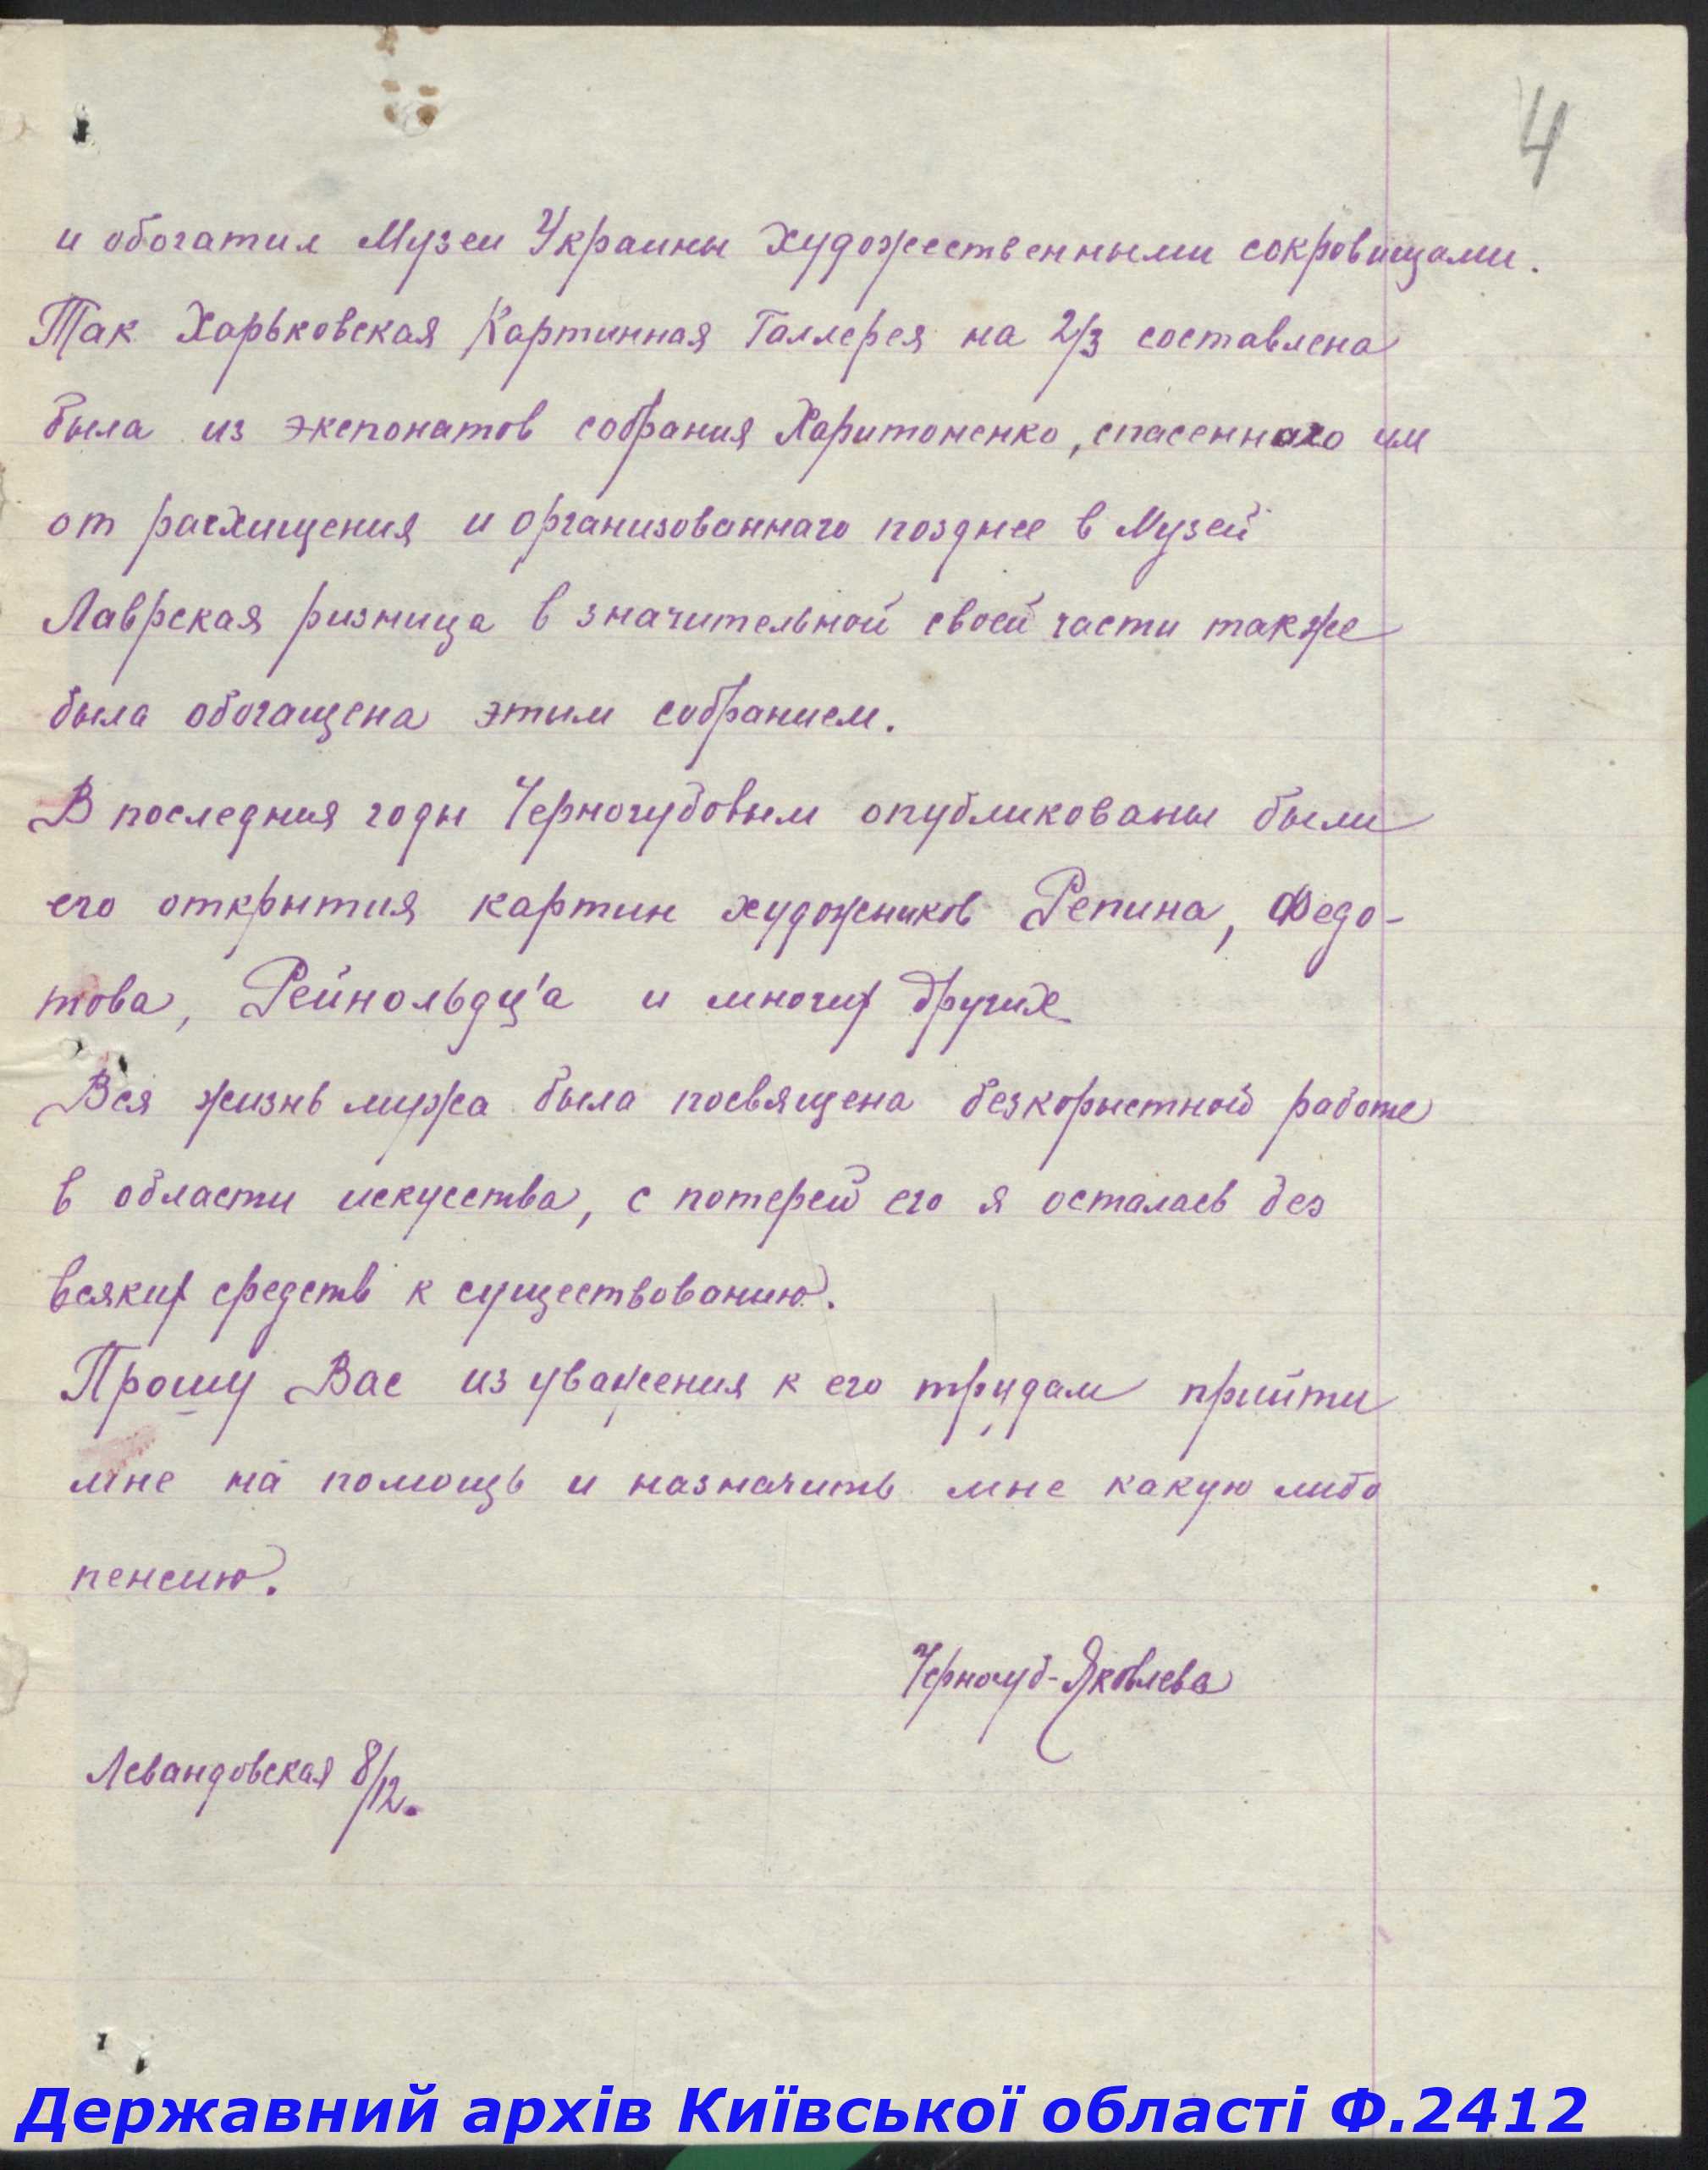 4
и обогатил Музеи Украины художественными сокровищами.
Так Харьковская Картинная Галлерея на 2/3 составлена
была из экспонатов собрания Харитоненко, спасеннаго им
от расхищения и организованнаго позднее в Музей
Лаврская ризница в значительной своей части также
была обогащена этим собранием.
В последния годы Черногубовым опубликованы были
его открытия картин художников Репина, Федо-
това, Рейнольдц'а и многих других
Вся жизнь мужа была посвящена безкорыстной работе
в области искусства, с потерей его я осталась без
всяких средств к существованию.
Прошу Вас из уважения к его трудам прийти
мне на помощь и назначить мне какую либо
пенсию.
Черногуб-Яковлева
Левандовская 8/12.
Державний архів Київської області Ф.2412